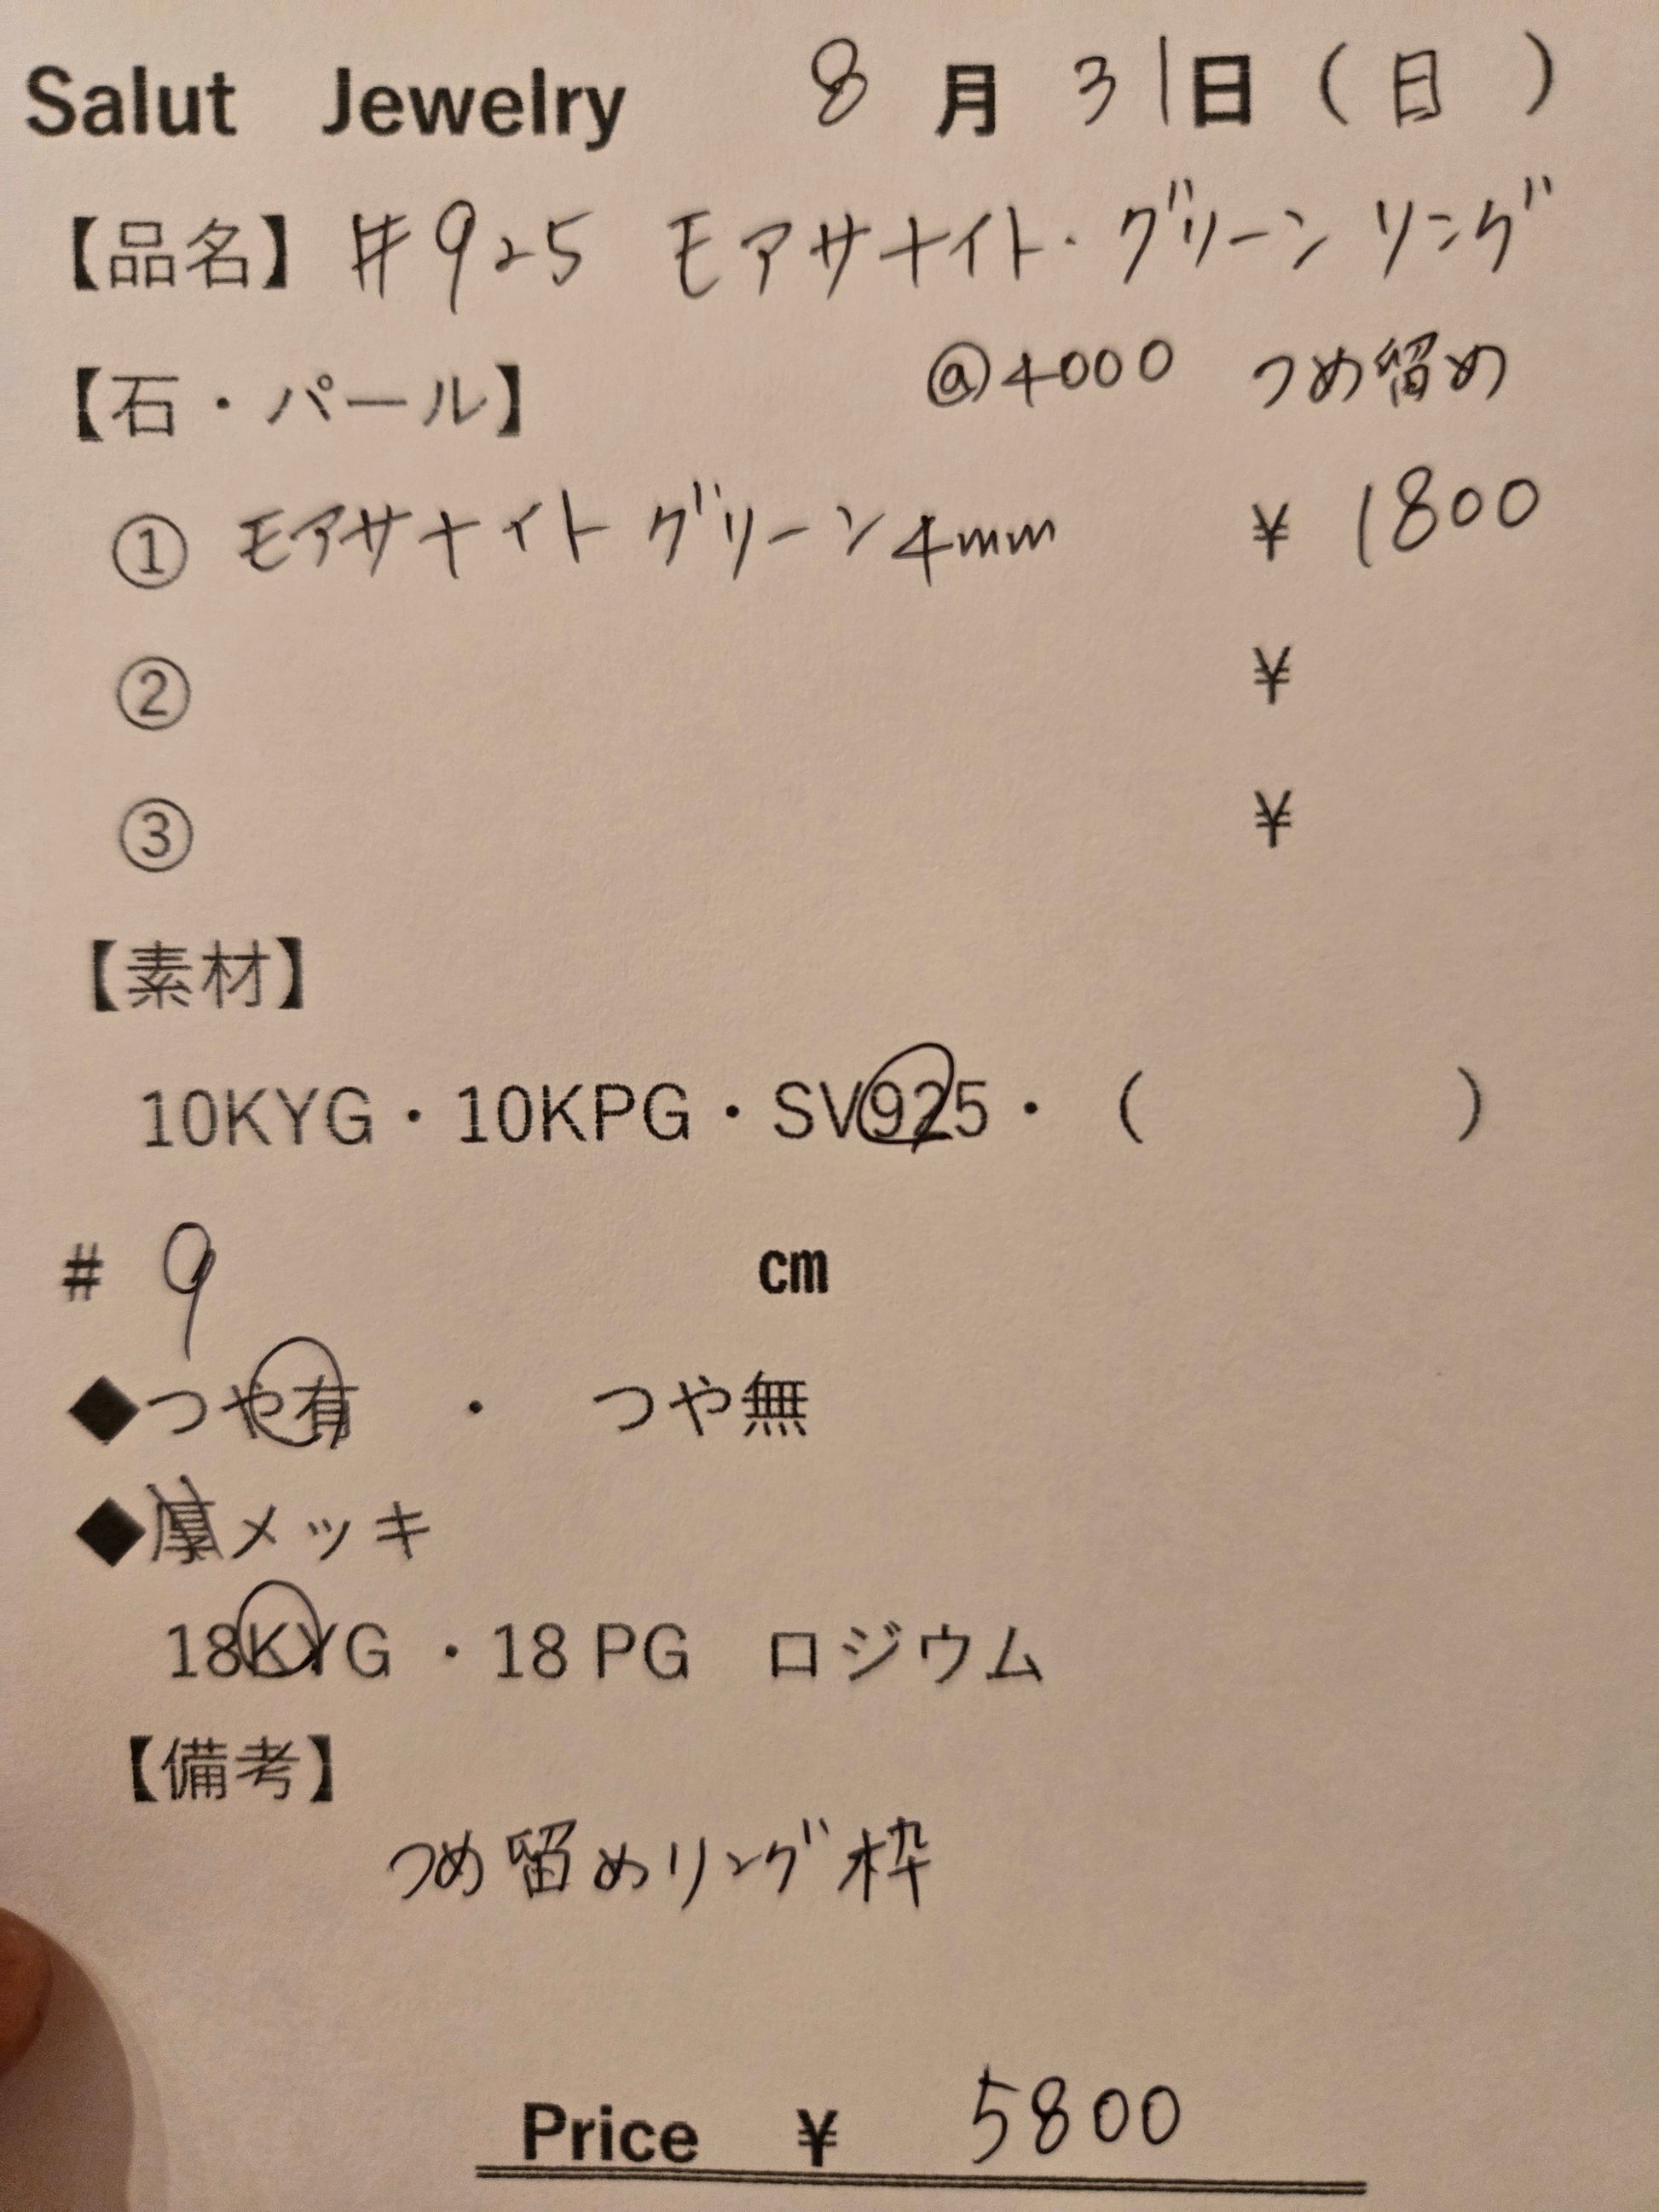 Salut Jewelry 8月31日(日)
【品名】#925 モアサナイト・グリーンリング
【石・パール】 @4000 つめ留め
① モアサナイトグリーン4mm ¥1800
② ¥
③ ¥
【素材】
10KYG・10KPG・SV925・( )
# 9 cm
◆つや有 ・ つや無
◆厚メッキ
18KYG ・18 PG ロジウム
【備考】
つめ留めリング枠
Price ¥ 5800